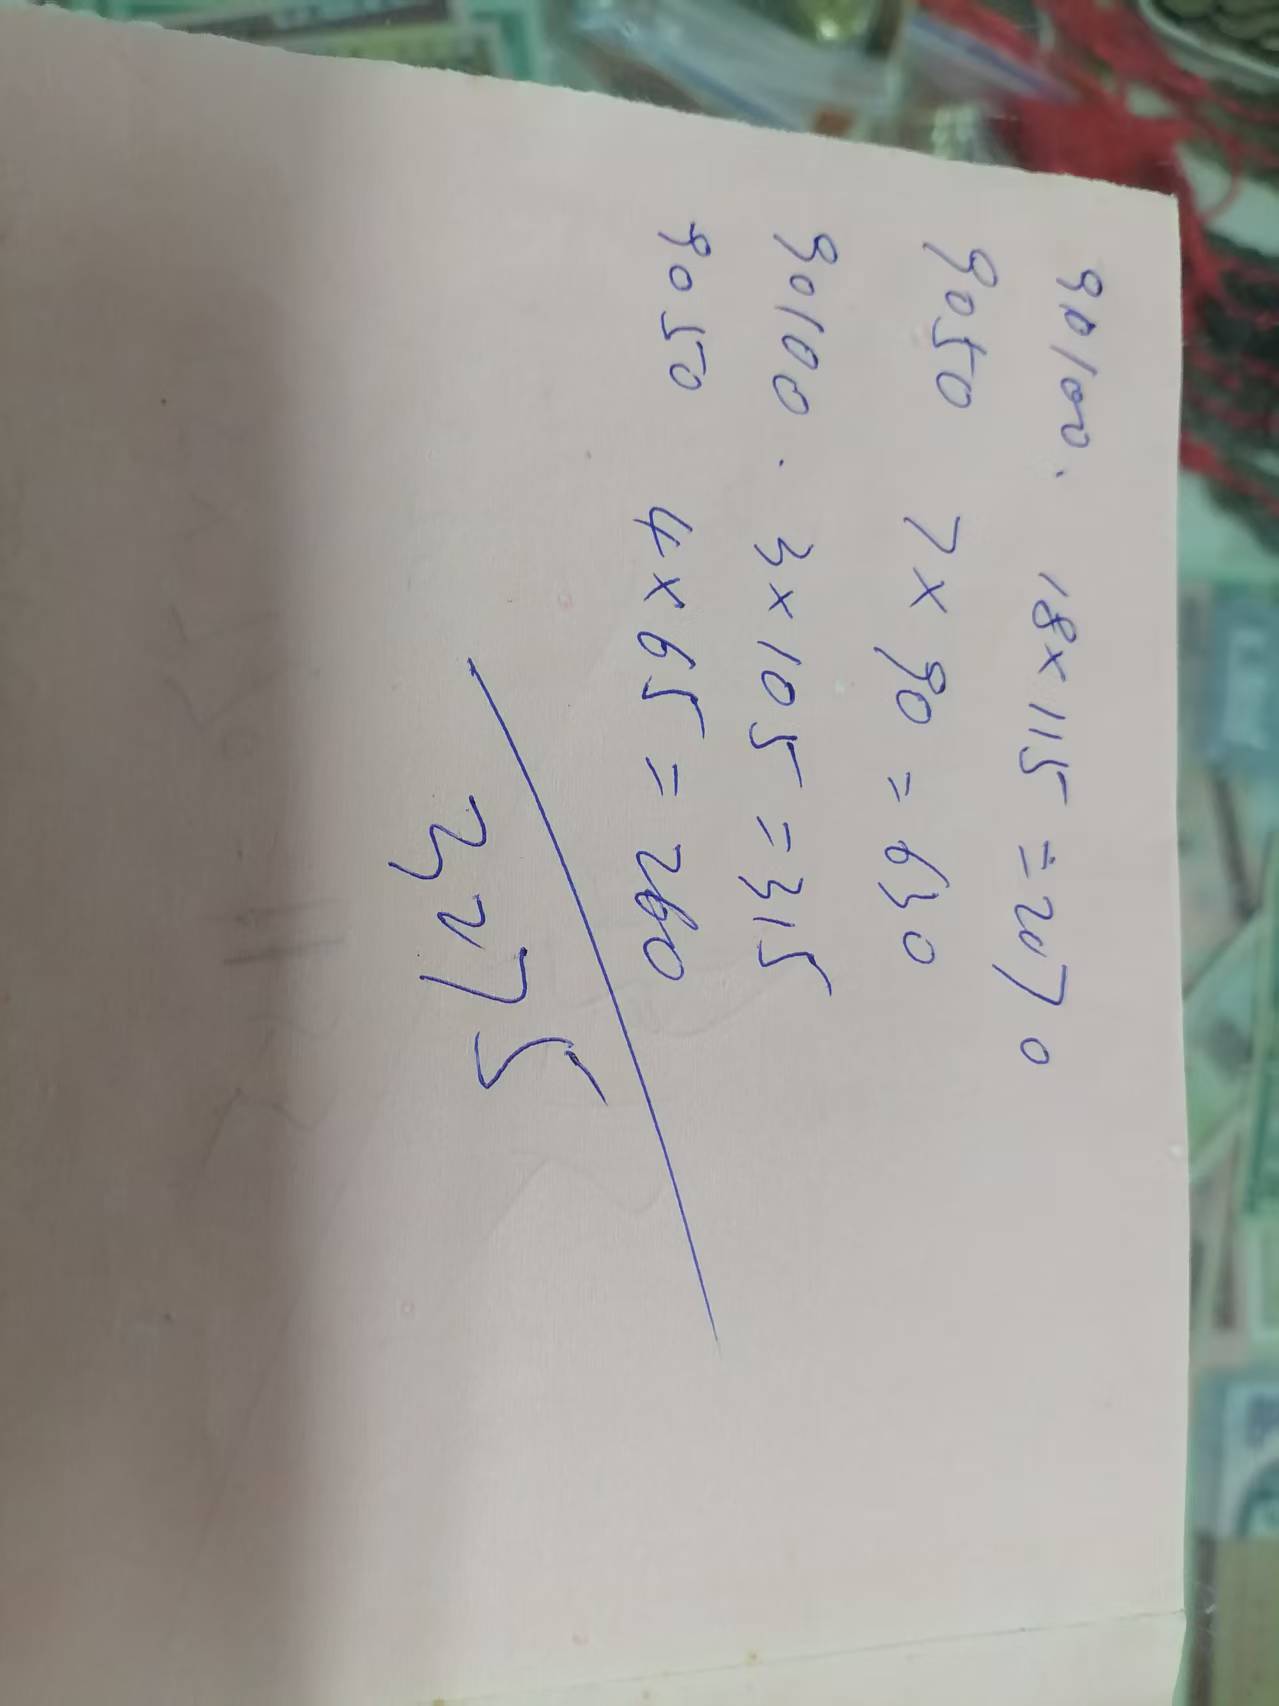 90100. 18×115=2070
9050 7×90=630
90100. 3×105=315
9050 4×65=260
3275